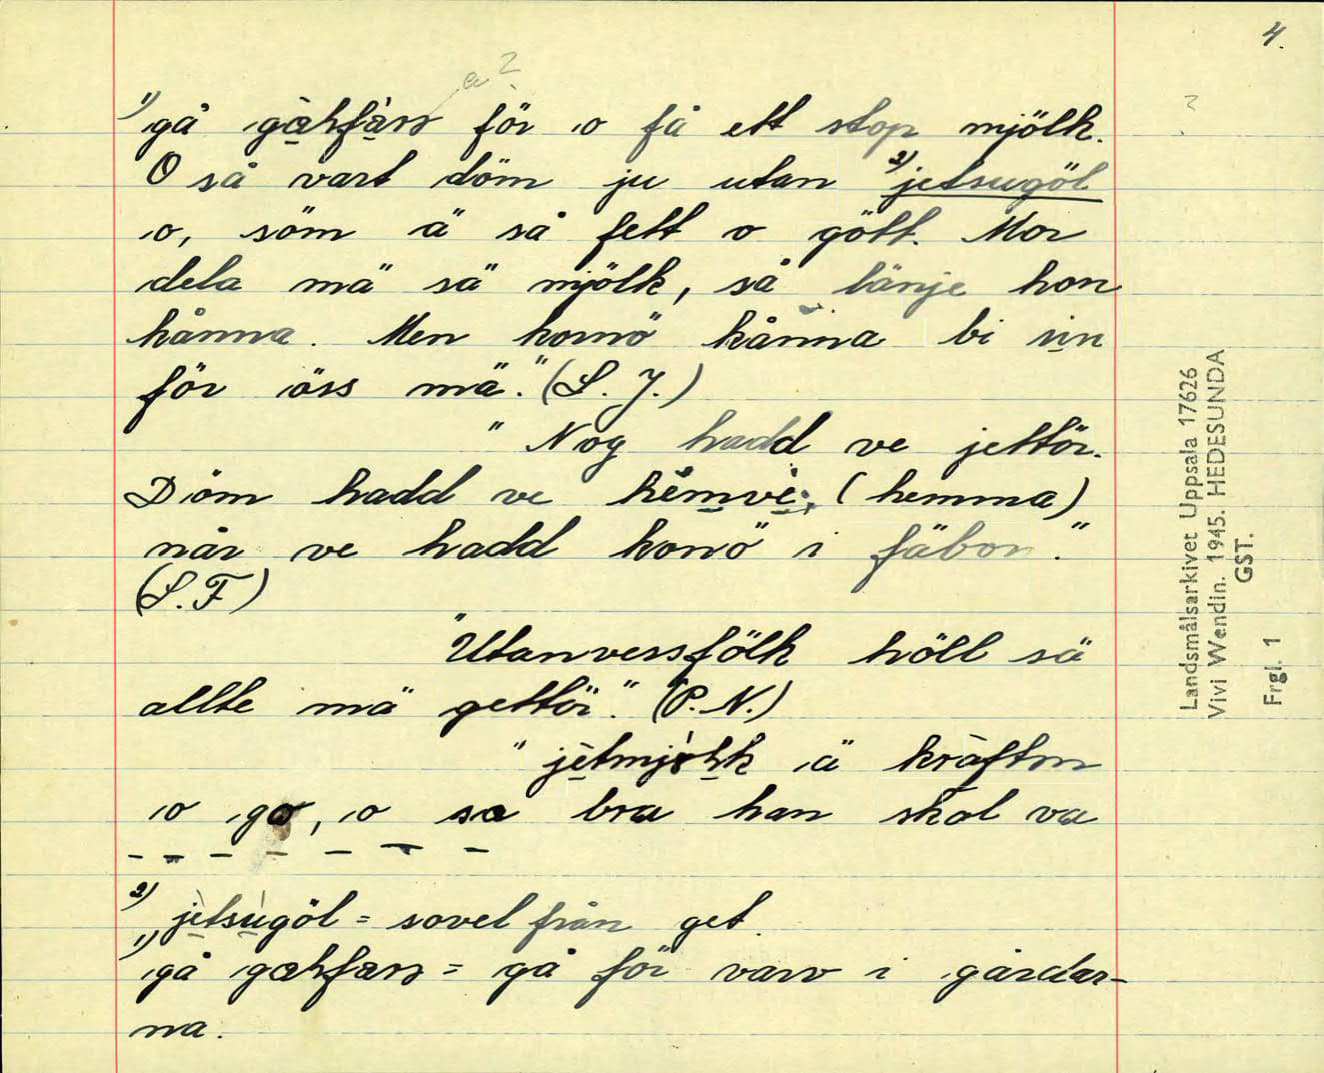 4.
a?
1) gå gàhfàrs för o få ett stop mjölk.
O så vart döm ju utan 2) jetsugöl
o, söm ä så fett o gött. Mor
dela mä sä mjölk, så länje hon
kånna. Men komö kånna bi sin
för öss mä." (S. J.)
"Nog hadd ve jettör.
Döm hadd ve hèmvè; (hemma)
når ve hadd konö i fäbon."
(S. F)
"Utanversfölk höll sä
allte mä gettör." (P. N.)
"jetmjöhk ä kräftm
o go, o sa bra han skol va
2) jètsùgöl = sovel från get.
1) gå gahfars = gå för varv i gårdar-
na.
?
Landsmålsarkivet Uppsala 17626
Vivi Wendin. 1945. HEDESUNDA
GST.
Frgl. 1